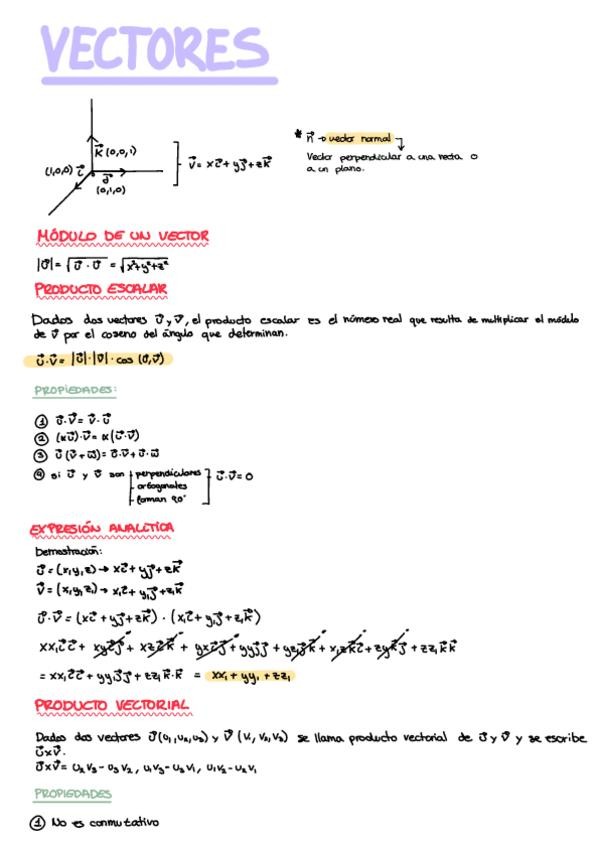 VECTORES
k⃗ (0,0,1)
(1,0,0) i⃗
j⃗
(0,1,0)
v⃗ = xi⃗ + yj⃗ + zk⃗
* n⃗ → vector normal
Vector perpendicular a una recta o
a un plano.
MÓDULO DE UN VECTOR
|u⃗| = √(u⃗ · u⃗) = √(x²+y²+z²)
PRODUCTO ESCALAR
Dados dos vectores u⃗ y v⃗, el producto escalar es el número real que resulta de multiplicar el módulo
de v⃗ por el coseno del ángulo que determinan.
u⃗ · v⃗ = |u⃗| · |v⃗| · cos (u⃗, v⃗)
PROPIEDADES:
① u⃗ · v⃗ = v⃗ · u⃗
② (αu⃗) · v⃗ = α(u⃗ · v⃗)
③ u⃗ (v⃗ + w⃗) = u⃗ · v⃗ + u⃗ · w⃗
④ si u⃗ y v⃗ son - perpendiculares
- ortogonales
- forman 90°
u⃗ · v⃗ = 0
EXPRESIÓN ANALÍTICA
Demostración:
u⃗ = (x,y,z) → xi⃗ + yj⃗ + zk⃗
v⃗ = (x₁y₁z₁) → x₁i⃗ + y₁j⃗ + z₁k⃗
u⃗ · v⃗ = (xi⃗ + yj⃗ + zk⃗) · (x₁i⃗ + y₁j⃗ + z₁k⃗)
xx₁i⃗i⃗ + xy₁i⃗j⃗ + xz₁i⃗k⃗ + yx₁i⃗j⃗ + yy₁j⃗j⃗ + yz₁j⃗k⃗ + x₁zk⃗i⃗ + zy₁k⃗j⃗ + zz₁k⃗k⃗
= xx₁i⃗i⃗ + yy₁j⃗j⃗ + zz₁k⃗·k⃗ = xx₁ + yy₁ + zz₁
PRODUCTO VECTORIAL
Dados dos vectores u⃗(u₁,u₂,u₃) y v⃗ (v₁,v₂,v₃) se llama producto vectorial de u⃗ y v⃗ y se escribe
u⃗xv⃗.
u⃗xv⃗ = u₂v₃ - u₃v₂, u₁v₃ - u₃v₁, u₁v₂ - u₂v₁
PROPIEDADES
① No es conmutativo